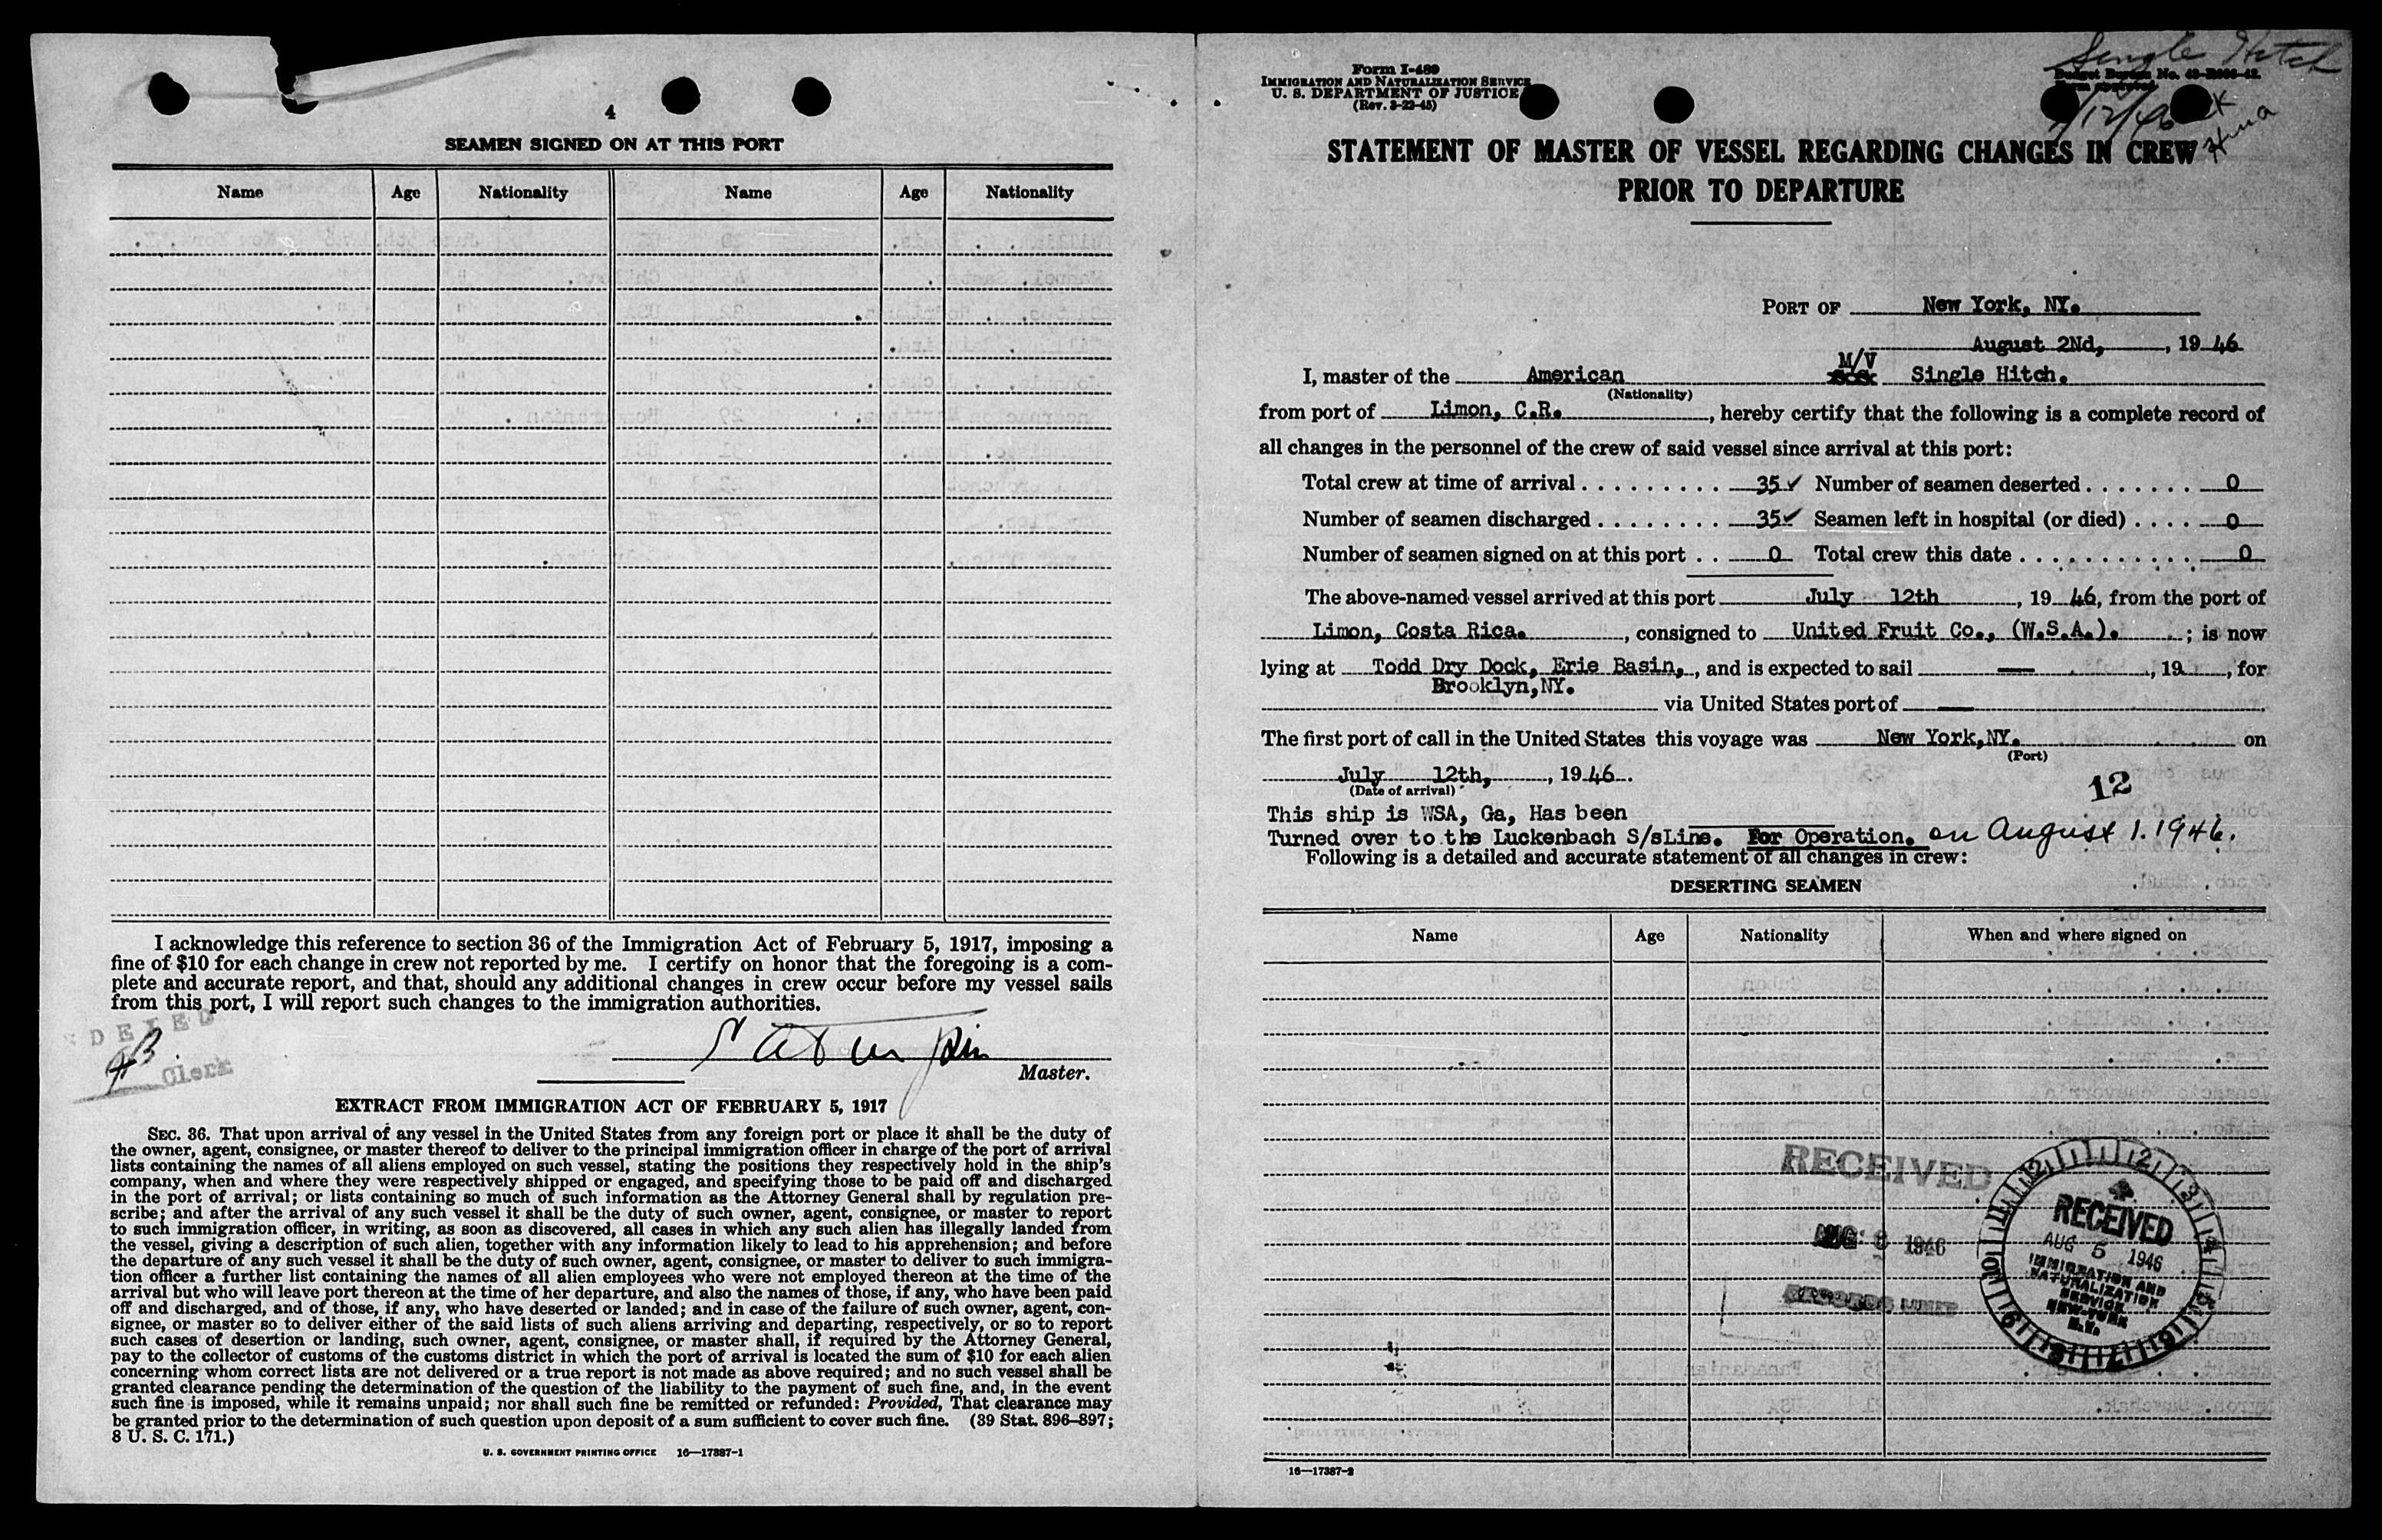 4
SEAMEN SIGNED ON AT THIS PORT
Name Age Nationality Name Age Nationality
I acknowledge this reference to section 36 of the Immigration Act of February 5, 1917, imposing a
fine of $10 for each change in crew not reported by me. I certify on honor that the foregoing is a com-
plete and accurate report, and that, should any additional changes in crew occur before my vessel sails
from this port, I will report such changes to the immigration authorities.
Clerk
Master.
EXTRACT FROM IMMIGRATION ACT OF FEBRUARY 5, 1917
SEC. 36. That upon arrival of any vessel in the United States from any foreign port or place it shall be the duty of
the owner, agent, consignee, or master thereof to deliver to the principal immigration officer in charge of the port of arrival
lists containing the names of all aliens employed on such vessel, stating the positions they respectively hold in the ship's
company, when and where they were respectively shipped or engaged, and specifying those to be paid off and discharged
in the port of arrival; or lists containing so much of such information as the Attorney General shall by regulation pre-
scribe; and after the arrival of any such vessel it shall be the duty of such owner, agent, consignee, or master to report
to such immigration officer, in writing, as soon as discovered, all cases in which any such alien has illegally landed from
the vessel, giving a description of such alien, together with any information likely to lead to his apprehension; and before
the departure of any such vessel it shall be the duty of such owner, agent, consignee, or master to deliver to such immigra-
tion officer a further list containing the names of all alien employees who were not employed thereon at the time of the
arrival but who will leave port thereon at the time of her departure, and also the names of those, if any, who have been paid
off and discharged, and of those, if any, who have deserted or landed; and in case of the failure of such owner, agent, con-
signee, or master so to deliver either of the said lists of such aliens arriving and departing, respectively, or so to report
such cases of desertion or landing, such owner, agent, consignee, or master shall, if required by the Attorney General,
pay to the collector of customs of the customs district in which the port of arrival is located the sum of $10 for each alien
concerning whom correct lists are not delivered or a true report is not made as above required; and no such vessel shall be
granted clearance pending the determination of the question of the liability to the payment of such fine, and, in the event
such fine is imposed, while it remains unpaid; nor shall such fine be remitted or refunded: Provided, That clearance may
be granted prior to the determination of such question upon deposit of a sum sufficient to cover such fine. (39 Stat. 896–897;
8 U. S. C. 171.)
U. S. GOVERNMENT PRINTING OFFICE 16—17387-1
Single Hitch
Form I-489
IMMIGRATION AND NATURALIZATION SERVICE
U. S. DEPARTMENT OF JUSTICE
(Rev. 3-22-45)
Budget Bureau No.
STATEMENT OF MASTER OF VESSEL REGARDING CHANGES IN CREW
PRIOR TO DEPARTURE
PORT OF New York, NY.
August 2Nd, , 19 46
I, master of the American M/V Single Hitch.
(Nationality)
from port of Limon, C.R. , hereby certify that the following is a complete record of
all changes in the personnel of the crew of said vessel since arrival at this port:
Total crew at time of arrival . . . . . . . . . 35 ✓ Number of seamen deserted . . . . . . . 0
Number of seamen discharged . . . . . . . . 35 ✓ Seamen left in hospital (or died) . . . . 0
Number of seamen signed on at this port . . 0 Total crew this date . . . . . . . . . . . 0
The above-named vessel arrived at this port July 12th , 19 46, from the port of
Limon, Costa Rica. , consigned to United Fruit Co., (W.S.A.). ; is now
lying at Todd Dry Dock, Erie Basin, , and is expected to sail — , 19 , for
Brooklyn,NY. via United States port of —
The first port of call in the United States this voyage was New York,NY. on
(Port)
July 12th, , 19 46 .
(Date of arrival)
12
This ship is WSA, Ga, Has been
Turned over to the Luckenbach S/sLine. For Operation. on August 1. 1946.
Following is a detailed and accurate statement of all changes in crew:
DESERTING SEAMEN
Name Age Nationality When and where signed on
RECEIVED
AUG 1946
RECORDS UNIT
RECEIVED
AUG 5 1946
IMMIGRATION AND
NATURALIZATION
SERVICE
NEW YORK
N.Y.
16—17387-2